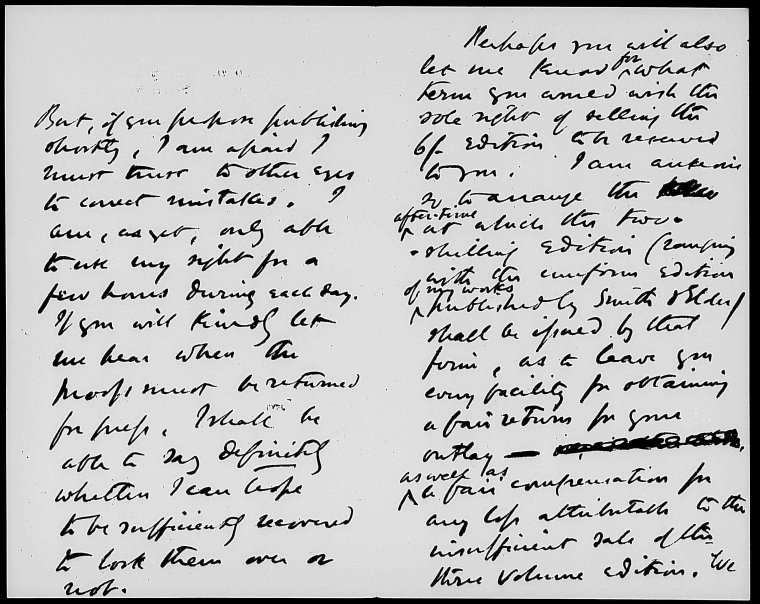 But, if you propose publishing
shortly, I am afraid I
must trust to other eyes
to correct mistakes. I
am, as yet, only able
to use my sight for a
few hours during each day.
If you will kindly let
me hear when the
proofs must be returned
for press, I shall be
able to say definitely
whether I can hope
to be sufficiently recovered
to look them over or
not.
Perhaps you will also
let me know for what
term you would wish the
sole right of selling the
6/- Edition to be reserved
to you. I am anxious
so to arrange the
after-time at which the two-
-shilling Edition (ranging
with the uniform edition
of my works published by Smith & Elder)
shall be issued by that
firm, as to leave you
every facility for obtaining
a fair return for your
outlay —
as well as a fair compensation for
any loss attributable to the
insufficient sale of the
three volume edition. We